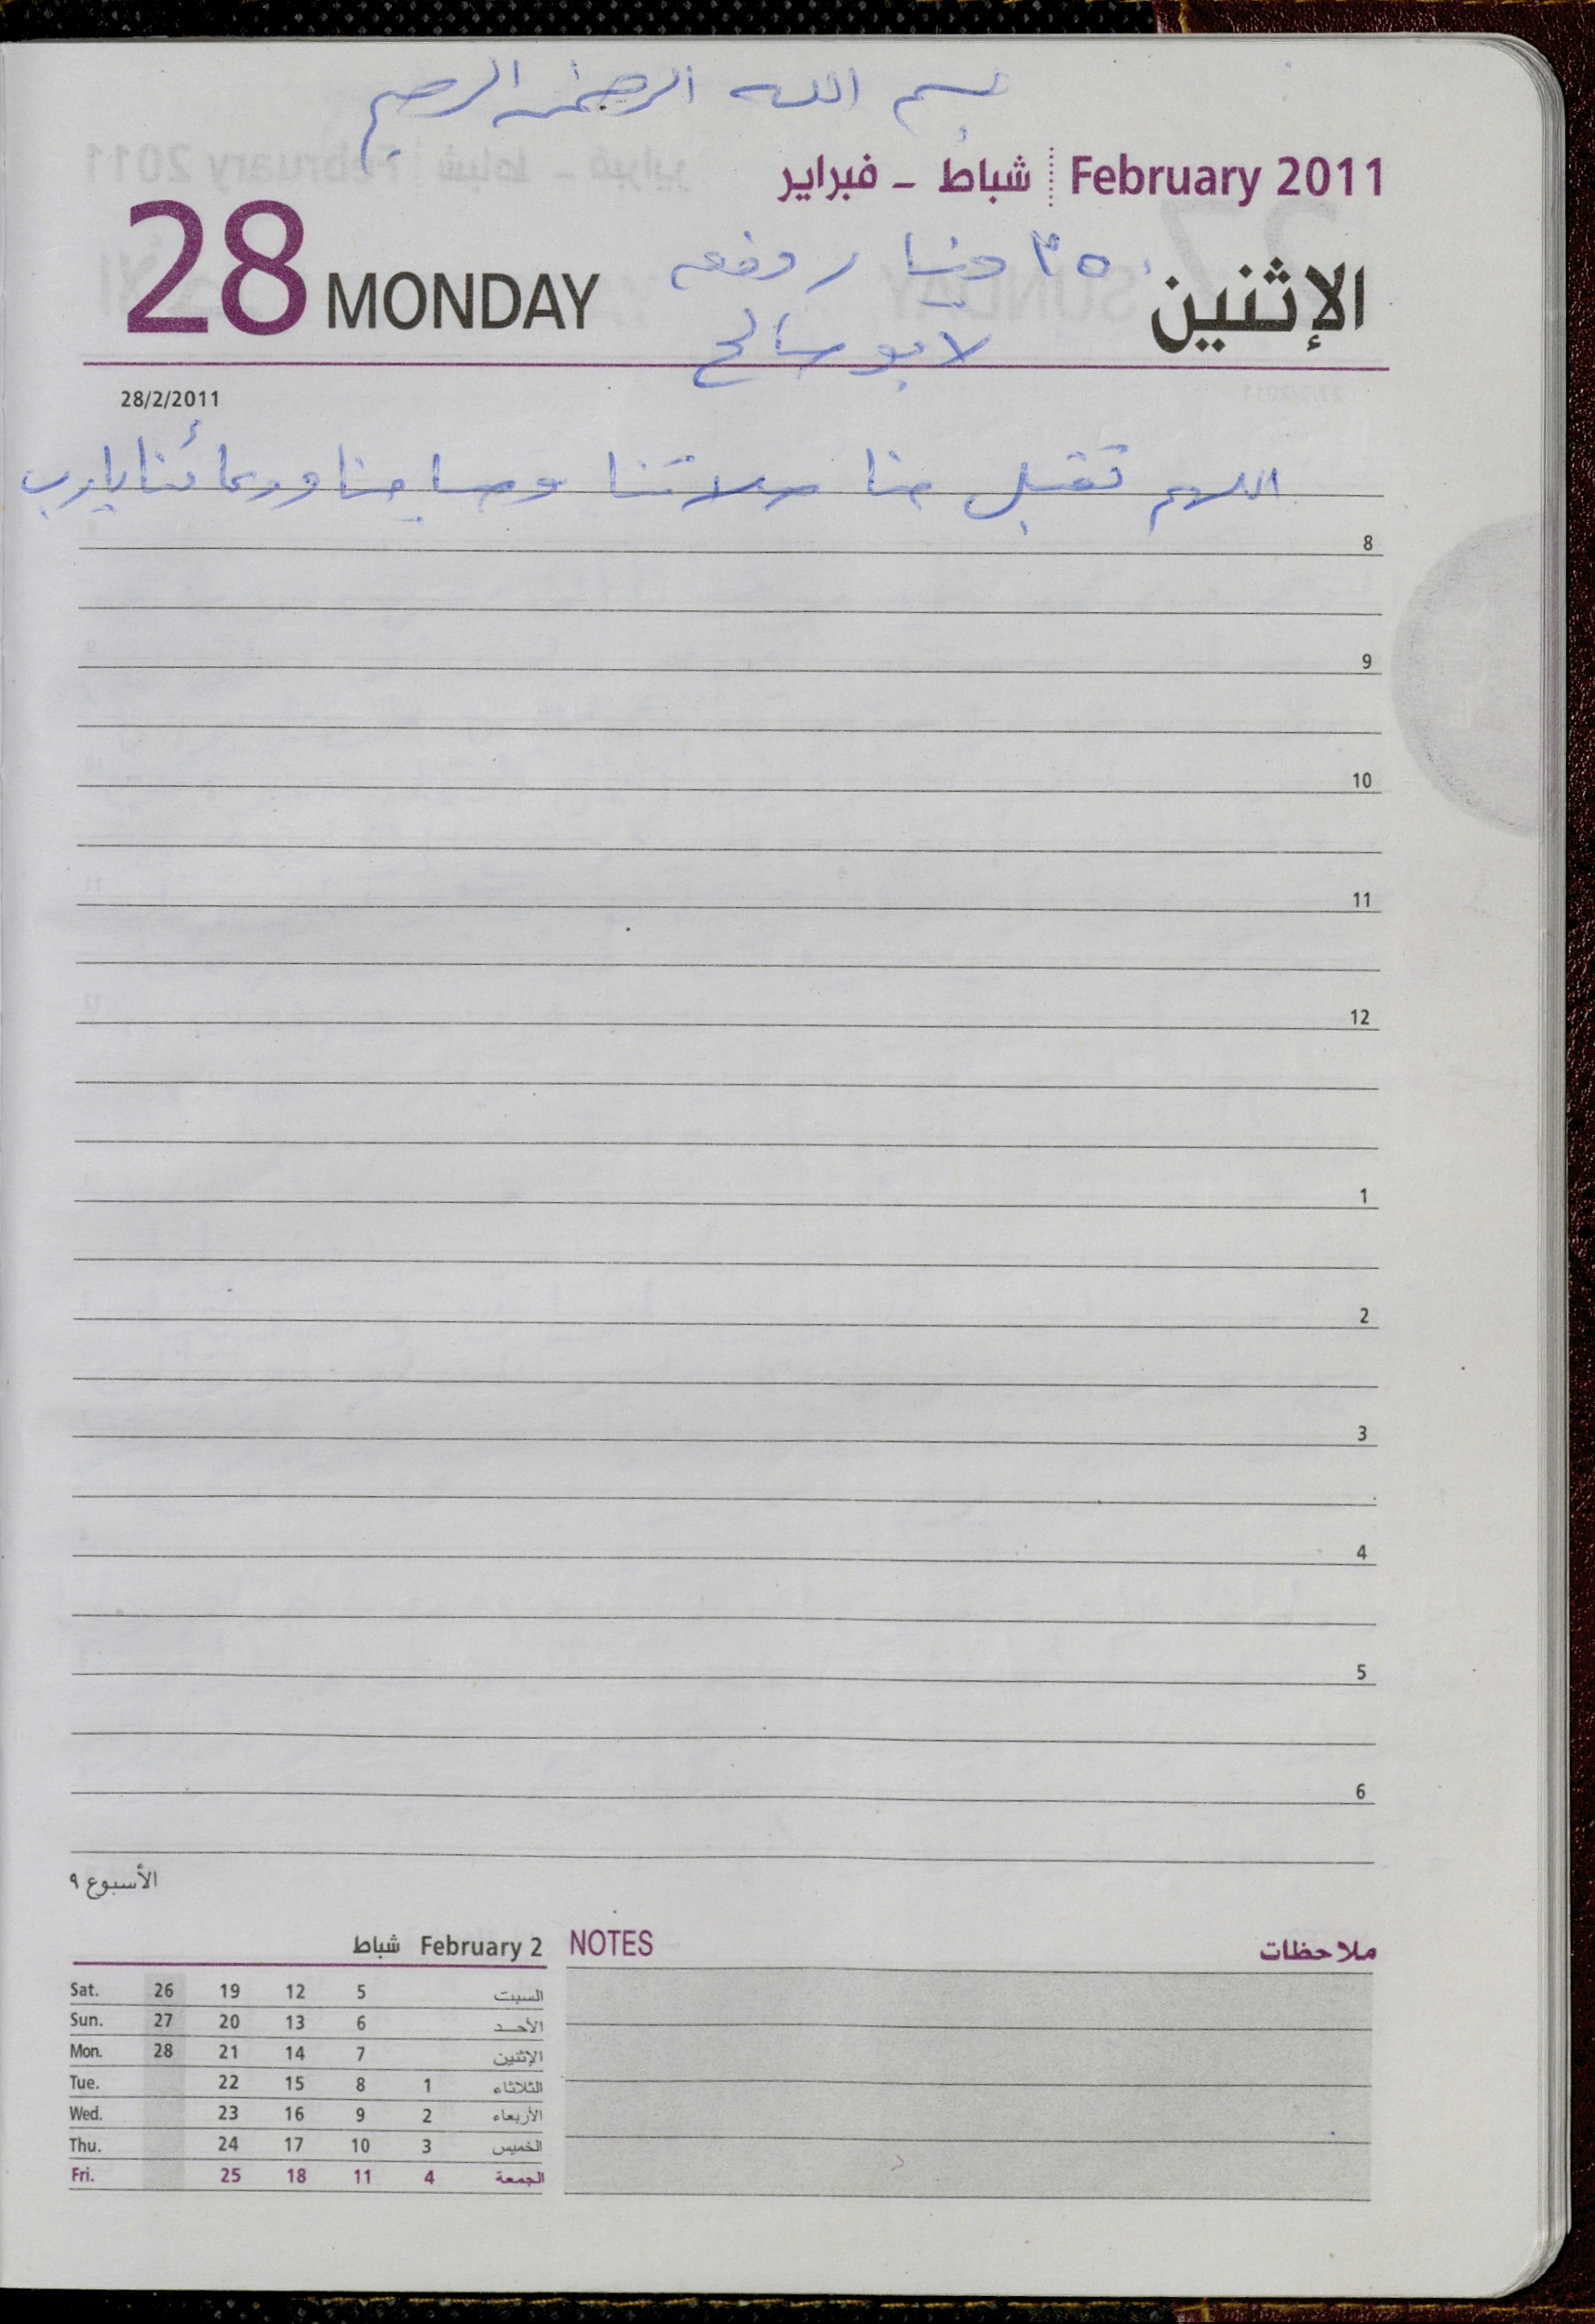 بسم الله الرحمن الرحيم
شباط - فبراير February 2011
28 MONDAY الإثنين
٣٥ دينار دفعه
لابو صالح
28/2/2011
اللهم تقبل منا صلاتنا وصيامنا ودعائنا يارب
8
9
10
11
12
1
2
3
4
5
6
الأسبوع ٩
شباط February 2
Sat. 26 19 12 5 السبت
Sun. 27 20 13 6 الأحد
Mon. 28 21 14 7 الإثنين
Tue. 22 15 8 1 الثلاثاء
Wed. 23 16 9 2 الأربعاء
Thu. 24 17 10 3 الخميس
Fri. 25 18 11 4 الجمعة
NOTES ملاحظات